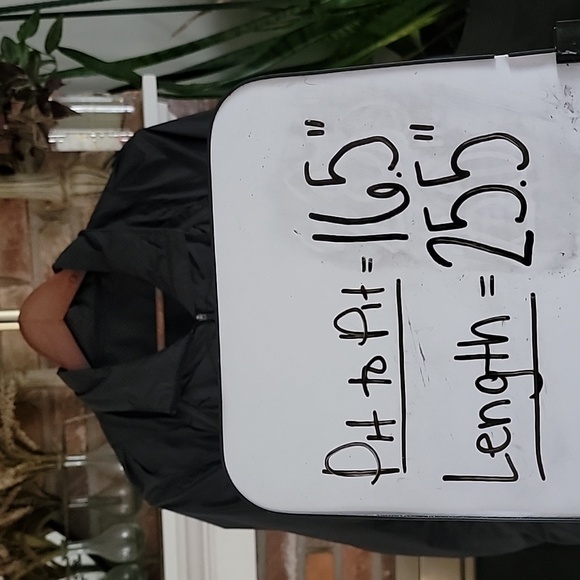 Pit to Pit = 16.5"
Length = 25.5"